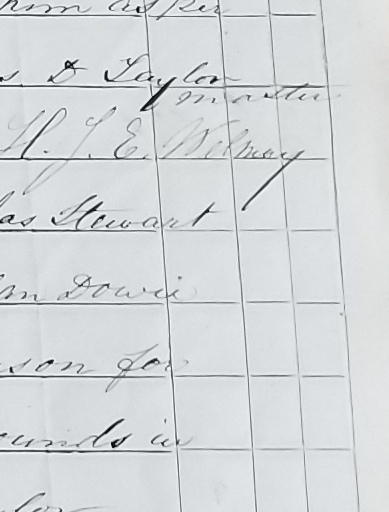 him as per
s D Taylor
master
H. J. E. Wolmay
as Stewart
m Dowie
son for
ounds in
lor